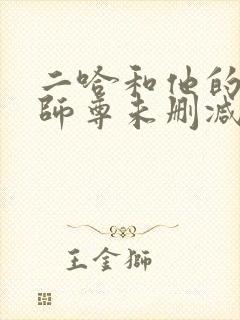 二哈和他的
師尊未刪減
王金獅